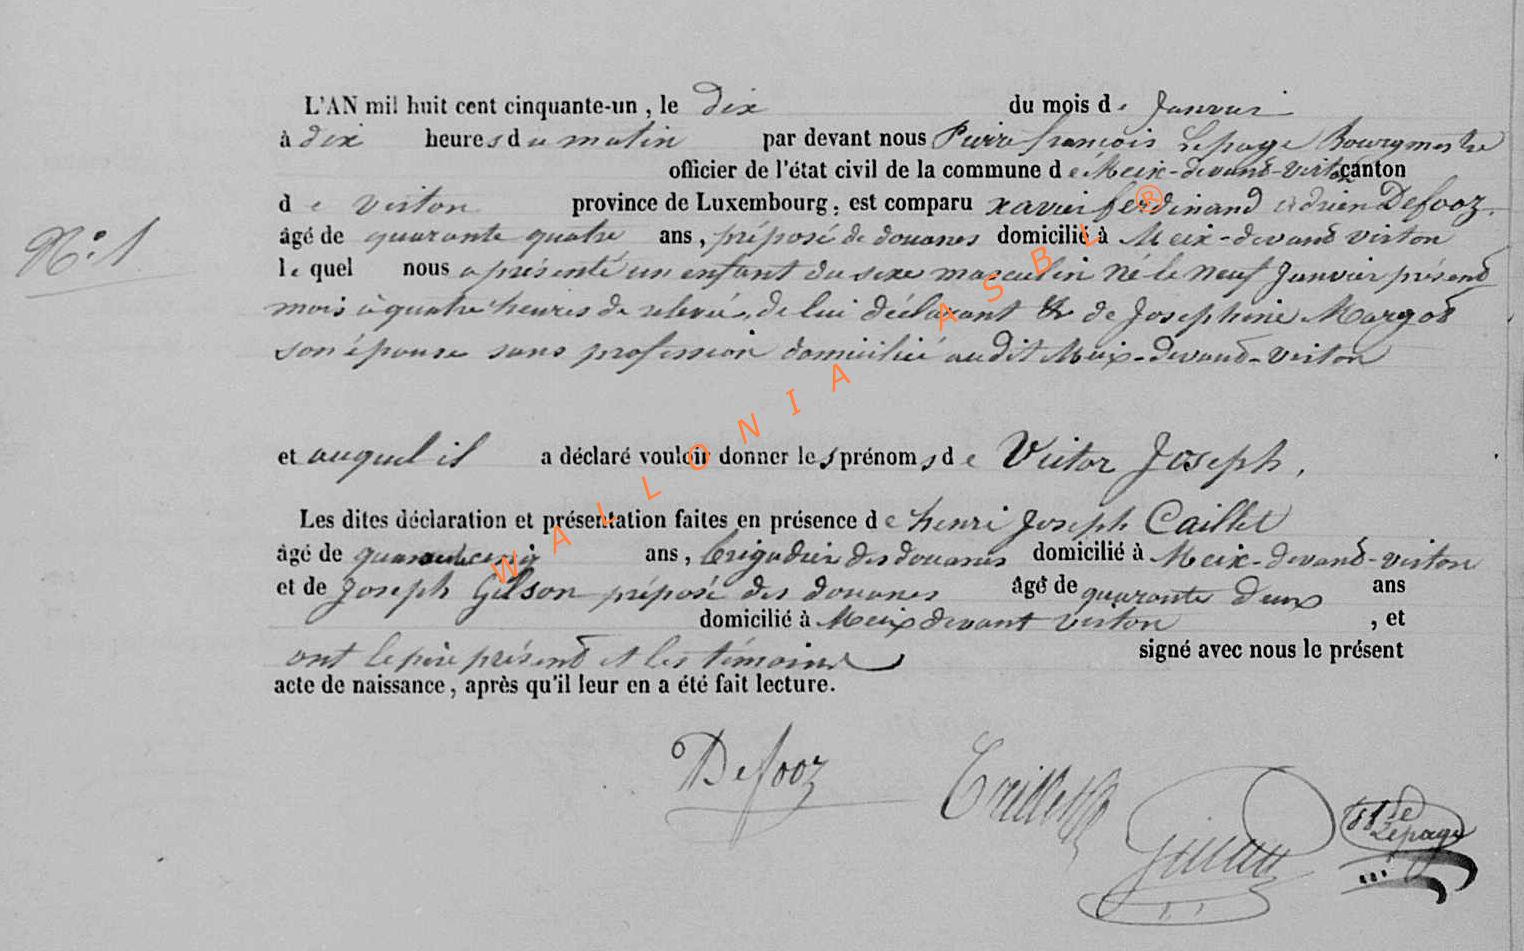 L'AN mil huit cent cinquante-un, le dix du mois de Janvier
à dix heures du matin par devant nous Pierre françois Lepage Bourgmestre
officier de l'état civil de la commune de Meix-devand-virton canton
de virton province de Luxembourg, est comparu xavier ferdinand adrien Defooz.
N.° 1
âgé de quarante quatre ans, préposé de douanes domicilié à Meix-devand virton
lequel nous a présenté un enfant du sexe masculin né le neuf Janvier présend
mois à quatre heures de relevée, de lui déclarant & de Josephine Margod
son épouse sans profession domiciliée audit Meix-devand-virton
et auquel il a déclaré vouloir donner les prénoms de Victor Joseph.
Les dites déclaration et présentation faites en présence de henri Joseph Caillet
âgé de quarante ans, brigadier des douanes domicilié à Meix-devand-virton
et de Joseph Gilson préposé des douanes âgé de quarante deux ans
domicilié à Meix devant virton, et
ont le père présend et les témoins signé avec nous le présent
acte de naissance, après qu'il leur en a été fait lecture.
Defooz
Caillet
Lepage
WALLONIA ASBL ®